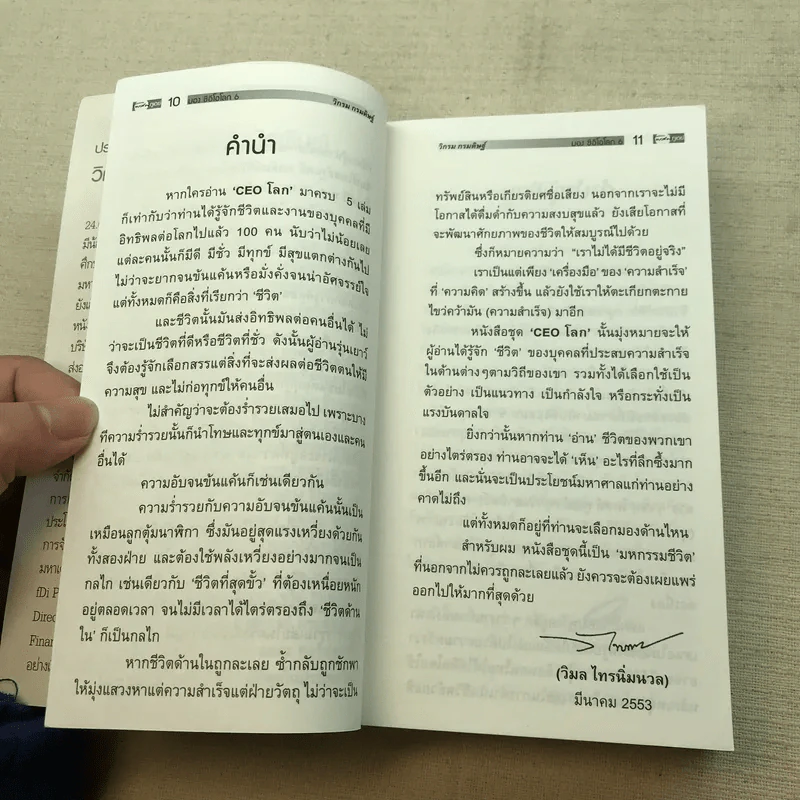 10 มอง ซีอีโอโลก 6 วิกรม กรมดิษฐ์
คำนำ
หากใครอ่าน 'CEO โลก' มาครบ 5 เล่ม
ก็เท่ากับว่าท่านได้รู้จักชีวิตและงานของบุคคลที่มี
อิทธิพลต่อโลกไปแล้ว 100 คน นับว่าไม่น้อยเลย
แต่ละคนนั้นก็มีดี มีชั่ว มีทุกข์ มีสุขแตกต่างกันไป
ไม่ว่าจะยากจนข้นแค้นหรือมั่งคั่งจนน่าอัศจรรย์ใจ
แต่ทั้งหมดก็คือสิ่งที่เรียกว่า 'ชีวิต'
และชีวิตนั้นมันส่งอิทธิพลต่อคนอื่นได้ ไม่
ว่าจะเป็นชีวิตที่ดีหรือชีวิตที่ชั่ว ดังนั้นผู้อ่านรุ่นเยาว์
จึงต้องรู้จักเลือกสรรแต่สิ่งที่จะส่งผลต่อชีวิตตนให้มี
ความสุข และไม่ก่อทุกข์ให้คนอื่น
ไม่สำคัญว่าจะต้องร่ำรวยเสมอไป เพราะบาง
ทีความร่ำรวยนั้นก็นำโทษและทุกข์มาสู่ตนเองและคน
อื่นได้
ความอับจนข้นแค้นก็เช่นเดียวกัน
ความร่ำรวยกับความอับจนข้นแค้นนั้นเป็น
เหมือนลูกตุ้มนาฬิกา ซึ่งมันอยู่สุดแรงเหวี่ยงด้วยกัน
ทั้งสองฝ่าย และต้องใช้พลังเหวี่ยงอย่างมากจนเป็น
กลไก เช่นเดียวกับ 'ชีวิตที่สุดขั้ว' ที่ต้องเหนื่อยหนัก
อยู่ตลอดเวลา จนไม่มีเวลาได้ไตร่ตรองถึง 'ชีวิตด้าน
ใน' ก็เป็นกลไก
หากชีวิตด้านในถูกละเลย ซ้ำกลับถูกชักพา
ให้มุ่งแสวงหาแต่ความสำเร็จแต่ฝ่ายวัตถุ ไม่ว่าจะเป็น
วิกรม กรมดิษฐ์ มอง ซีอีโอโลก 6 11
ทรัพย์สินหรือเกียรติยศชื่อเสียง นอกจากเราจะไม่มี
โอกาสได้ดื่มด่ำกับความสงบสุขแล้ว ยังเสียโอกาสที่
จะพัฒนาศักยภาพของชีวิตให้สมบูรณ์ไปด้วย
ซึ่งก็หมายความว่า "เราไม่ได้มีชีวิตอยู่จริง"
เราเป็นแต่เพียง 'เครื่องมือ' ของ 'ความสำเร็จ'
ที่ 'ความคิด' สร้างขึ้น แล้วยังใช้เราให้ตะเกียกตะกาย
ไขว่คว้ามัน (ความสำเร็จ) มาอีก
หนังสือชุด 'CEO โลก' นั้นมุ่งหมายจะให้
ผู้อ่านได้รู้จัก 'ชีวิต' ของบุคคลที่ประสบความสำเร็จ
ในด้านต่างๆตามวิถีของเขา รวมทั้งได้เลือกใช้เป็น
ตัวอย่าง เป็นแนวทาง เป็นกำลังใจ หรือกระทั่งเป็น
แรงบันดาลใจ
ยิ่งกว่านั้นหากท่าน 'อ่าน' ชีวิตของพวกเขา
อย่างไตร่ตรอง ท่านอาจจะได้ 'เห็น' อะไรที่ลึกซึ้งมาก
ขึ้นอีก และนั่นจะเป็นประโยชน์มหาศาลแก่ท่านอย่าง
คาดไม่ถึง
แต่ทั้งหมดก็อยู่ที่ท่านจะเลือกมองด้านไหน
สำหรับผม หนังสือชุดนี้เป็น 'มหกรรมชีวิต'
ที่นอกจากไม่ควรถูกละเลยแล้ว ยังควรจะต้องเผยแพร่
ออกไปให้มากที่สุดด้วย
(วิมล ไทรนิ่มนวล)
มีนาคม 2553